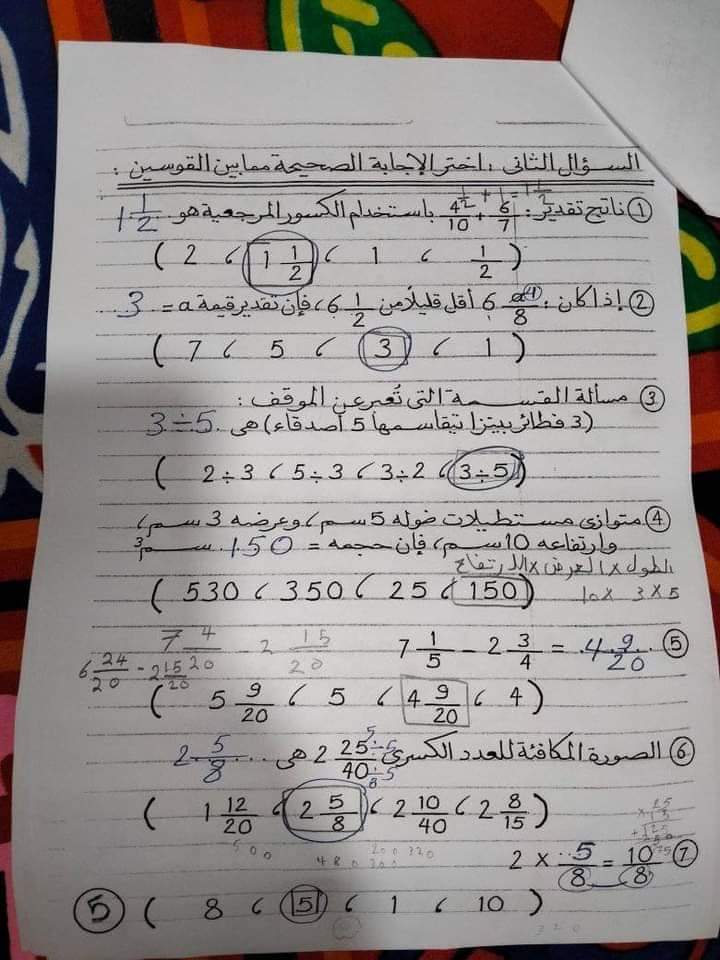 السؤال الثاني : اختر الإجابة الصحيحة مما بين القوسين :
1/2 + 1 = 1 1/2
① ناتج تقدير : 4/10 + 6/7 باستخدام الكسور المرجعية هو 1 1/2
( 1/2 ، 1 ، 1 1/2 ، 2 )
② إذا كان : 6 a/8 أقل قليلًا من 6 1/2 ، فإن تقدير قيمة a = 3
( 1 ، 3 ، 5 ، 7 )
③ مسألة القسمة التي تُعبر عن الموقف :
(3 فطائر بيتزا يتقاسمها 5 أصدقاء) هي 3÷5
( 3÷5 ، 3÷2 ، 5÷3 ، 2÷3 )
④ متوازي مستطيلات طوله 5 سم ، وعرضه 3 سم ،
وارتفاعه 10 سم ، فإن حجمه = 150 سم³
الطول × العرض × الارتفاع
( 150 ، 25 ، 350 ، 530 )
5 × 3 × 10
7 4/20 - 2 15/20
⑤ 7 1/5 - 2 3/4 = 4 9/20
6 24/20 - 2 15/20
( 4 ، 4 9/20 ، 5 ، 5 9/20 )
⑥ الصورة المكافئة للعدد الكسرى 2 25÷5/40÷5 هي 2 5/8
( 2 8/15 ، 2 10/40 ، 2 5/8 ، 1 12/20 )
⑦ 2 × 5/8 = 10/8
( 10 ، 1 ، 5 ، 8 )
⑤